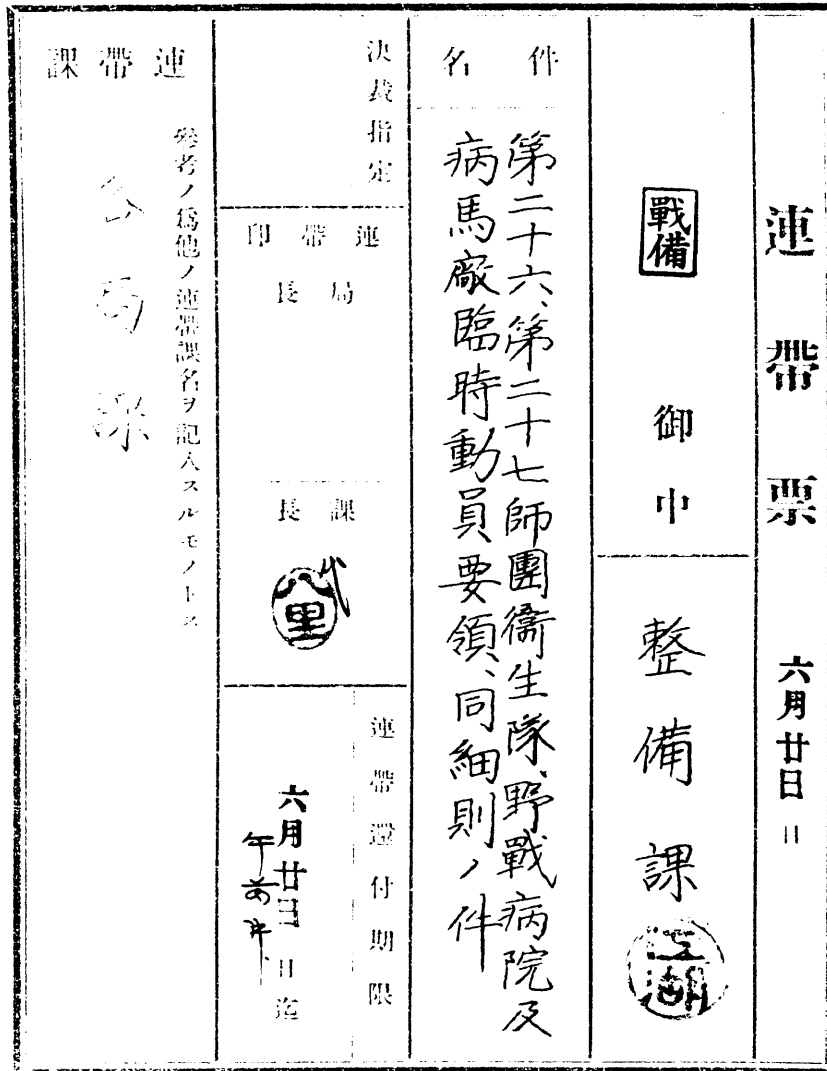 連帶票
六月廿日 日
戰備 御中
整備課
件名
第二十六、第二十七師團衞生隊、野戰病院及
病馬廠臨時動員要領、同細則ノ件
決裁指定
連帶印
局長
課長
八里
連帶還付期限
六月廿日 日迄
午前中
連帶課
參考ノ爲他ノ連帶課名ヲ記入スルモノトス